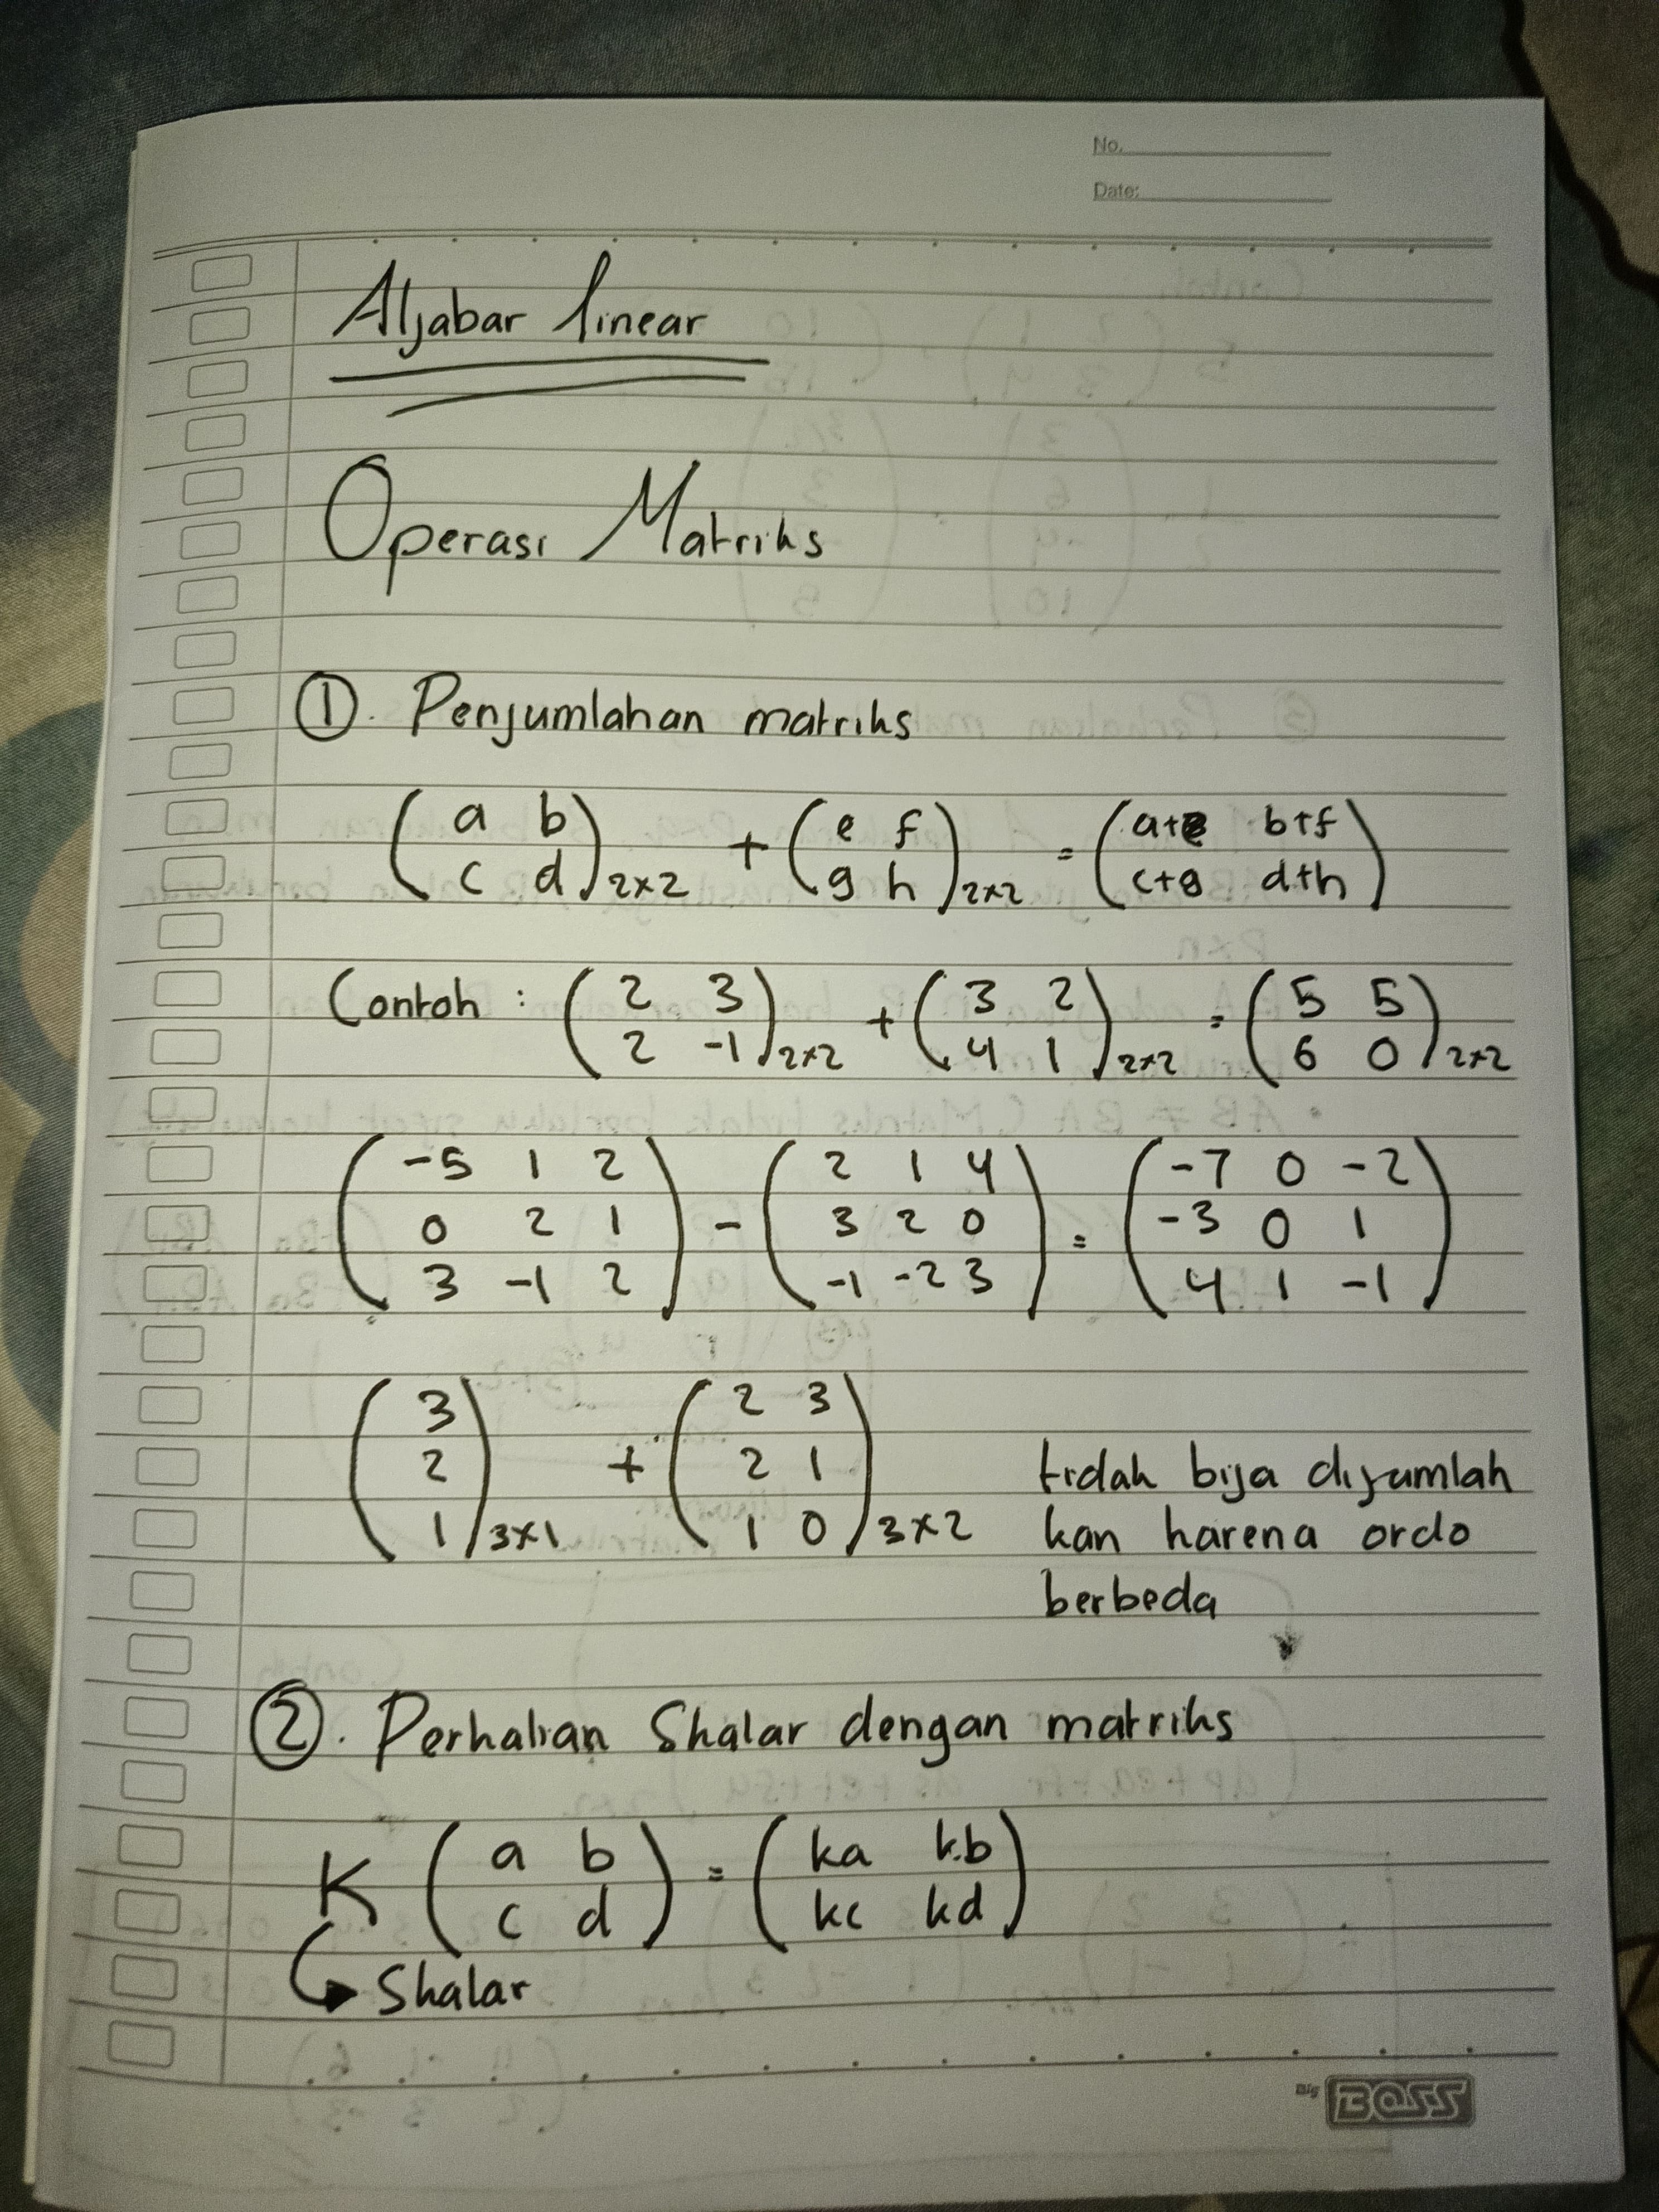 No.
Date:
Aljabar linear
Operasi Matriks
①. Penjumlahan matriks
( a b ; c d )2×2 + ( e f ; g h )2×2 = ( a+e b+f ; c+g d+h )
Contoh : ( 2 3 ; 2 -1 )2×2 + ( 3 2 ; 4 1 )2×2 = ( 5 5 ; 6 0 )2×2
( -5 1 2 ; 0 2 1 ; 3 -1 2 ) - ( 2 1 4 ; 3 2 0 ; -1 -2 3 ) = ( -7 0 -2 ; -3 0 1 ; 4 1 -1 )
( 3 ; 2 ; 1 )3×1 + ( 2 3 ; 2 1 ; 1 0 )3×2
tidak bisa dijumlah
kan karena ordo
berbeda
②. Perkalian Skalar dengan matriks
K ( a b ; c d ) = ( ka k.b ; kc kd )
Skalar
Big BOSS